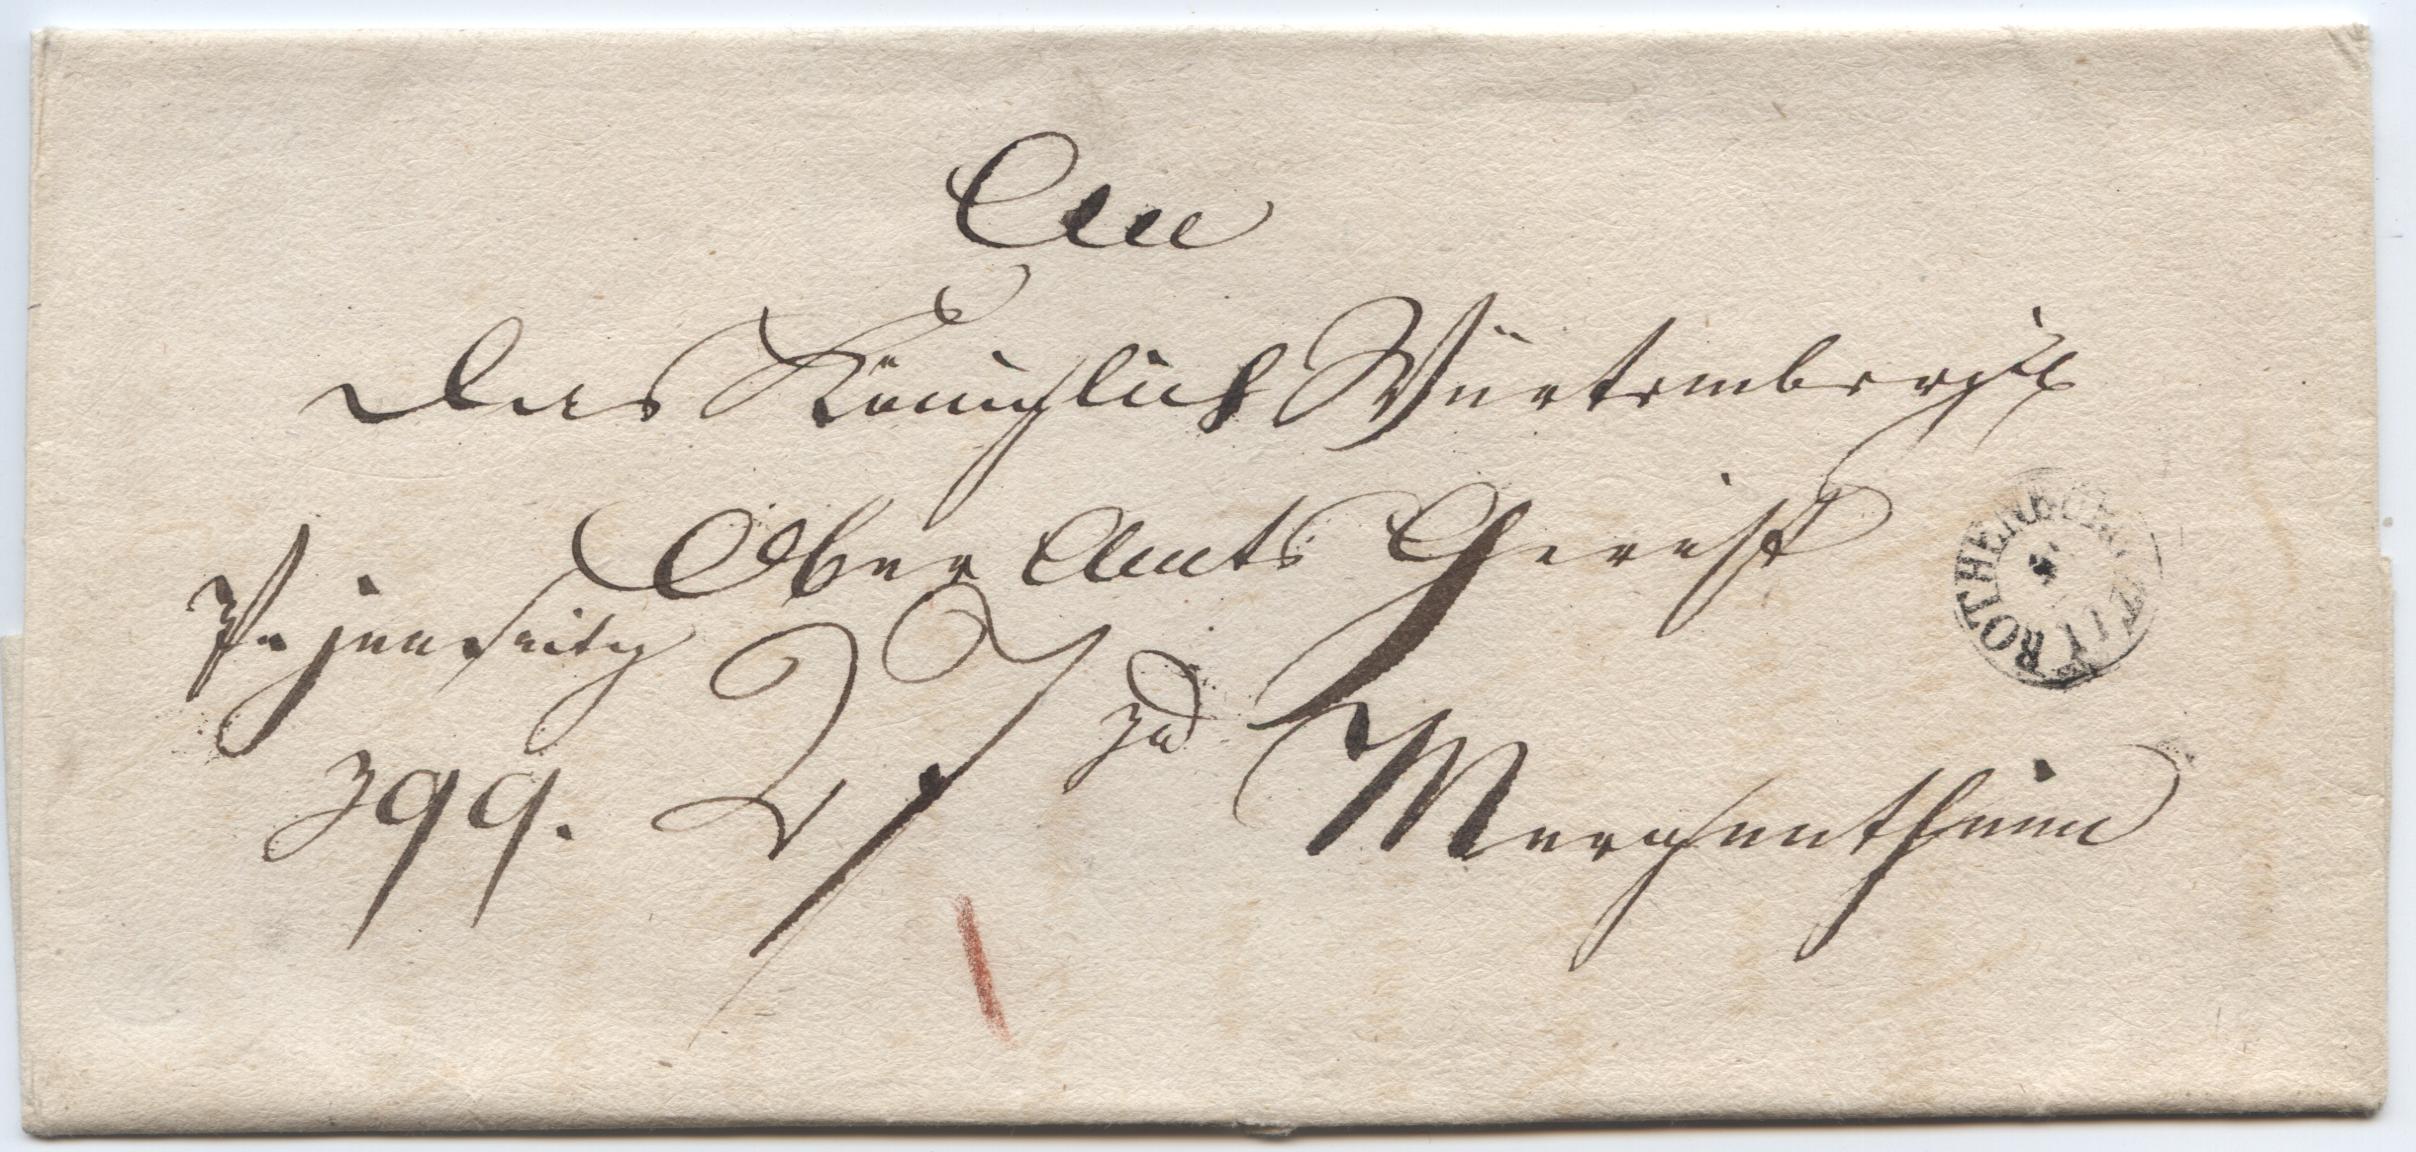 An
das Königlich Würtembergische
Ober Amts Gericht
jenseitig
zu
399.
Mergentheim
ROTHENBURG